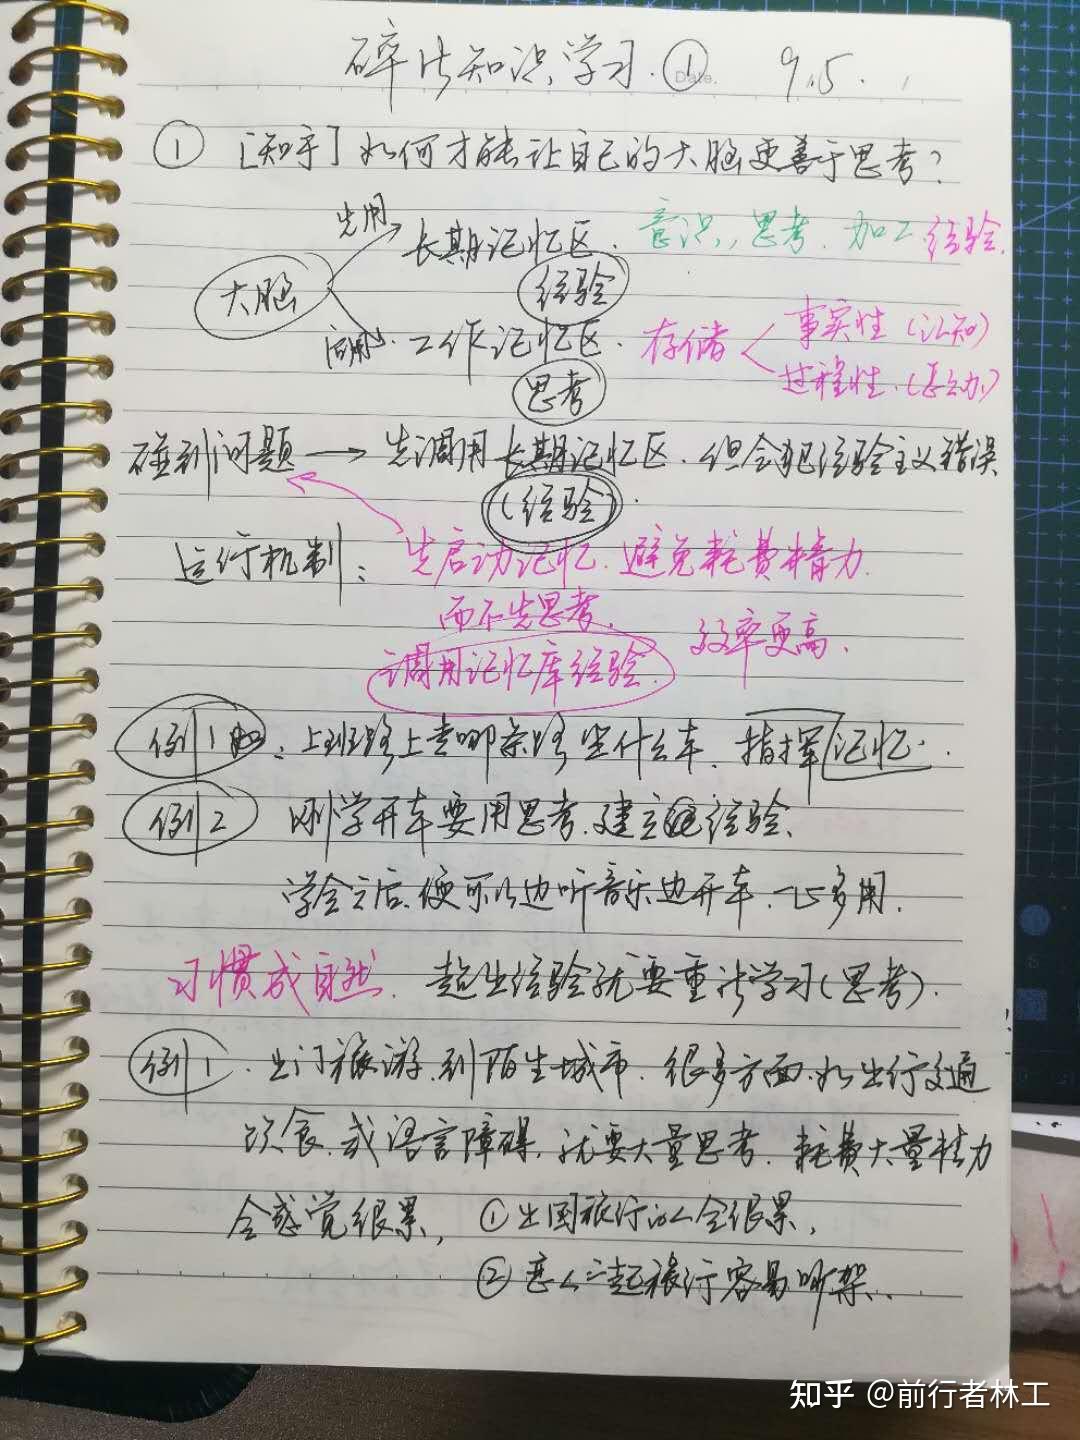 碎片知识学习.① Date. 9.5.
① [知乎] 如何才能让自己的大脑更善于思考?
先用 长期记忆区. 意识, 思考. 加工 经验.
大脑 经验
后用 工作记忆区. 存储 事实性 (认知)
过程性. (怎么办)
思考
碰到问题 → 先调用长期记忆区. 但会犯经验主义错误
(经验).
运行机制: 先启动记忆. 避免耗费精力.
而不先思考. 效率更高.
调用记忆库经验.
例1如: 上班路上走哪条路坐什么车. 指挥记忆.
例2 刚学开车要用思考. 建立经验.
学会之后, 便可以边听音乐边开车. 一心多用.
习惯成自然. 超出经验就要重新学习(思考).
例1. 出门旅游. 到陌生城市. 很多方面. 如出行交通
饮食. 或语言障碍. 就要大量思考. 耗费大量精力
会感觉很累, ①出国旅行的人会很累,
②恋人一起旅行容易吵架..
知乎 @前行者林工